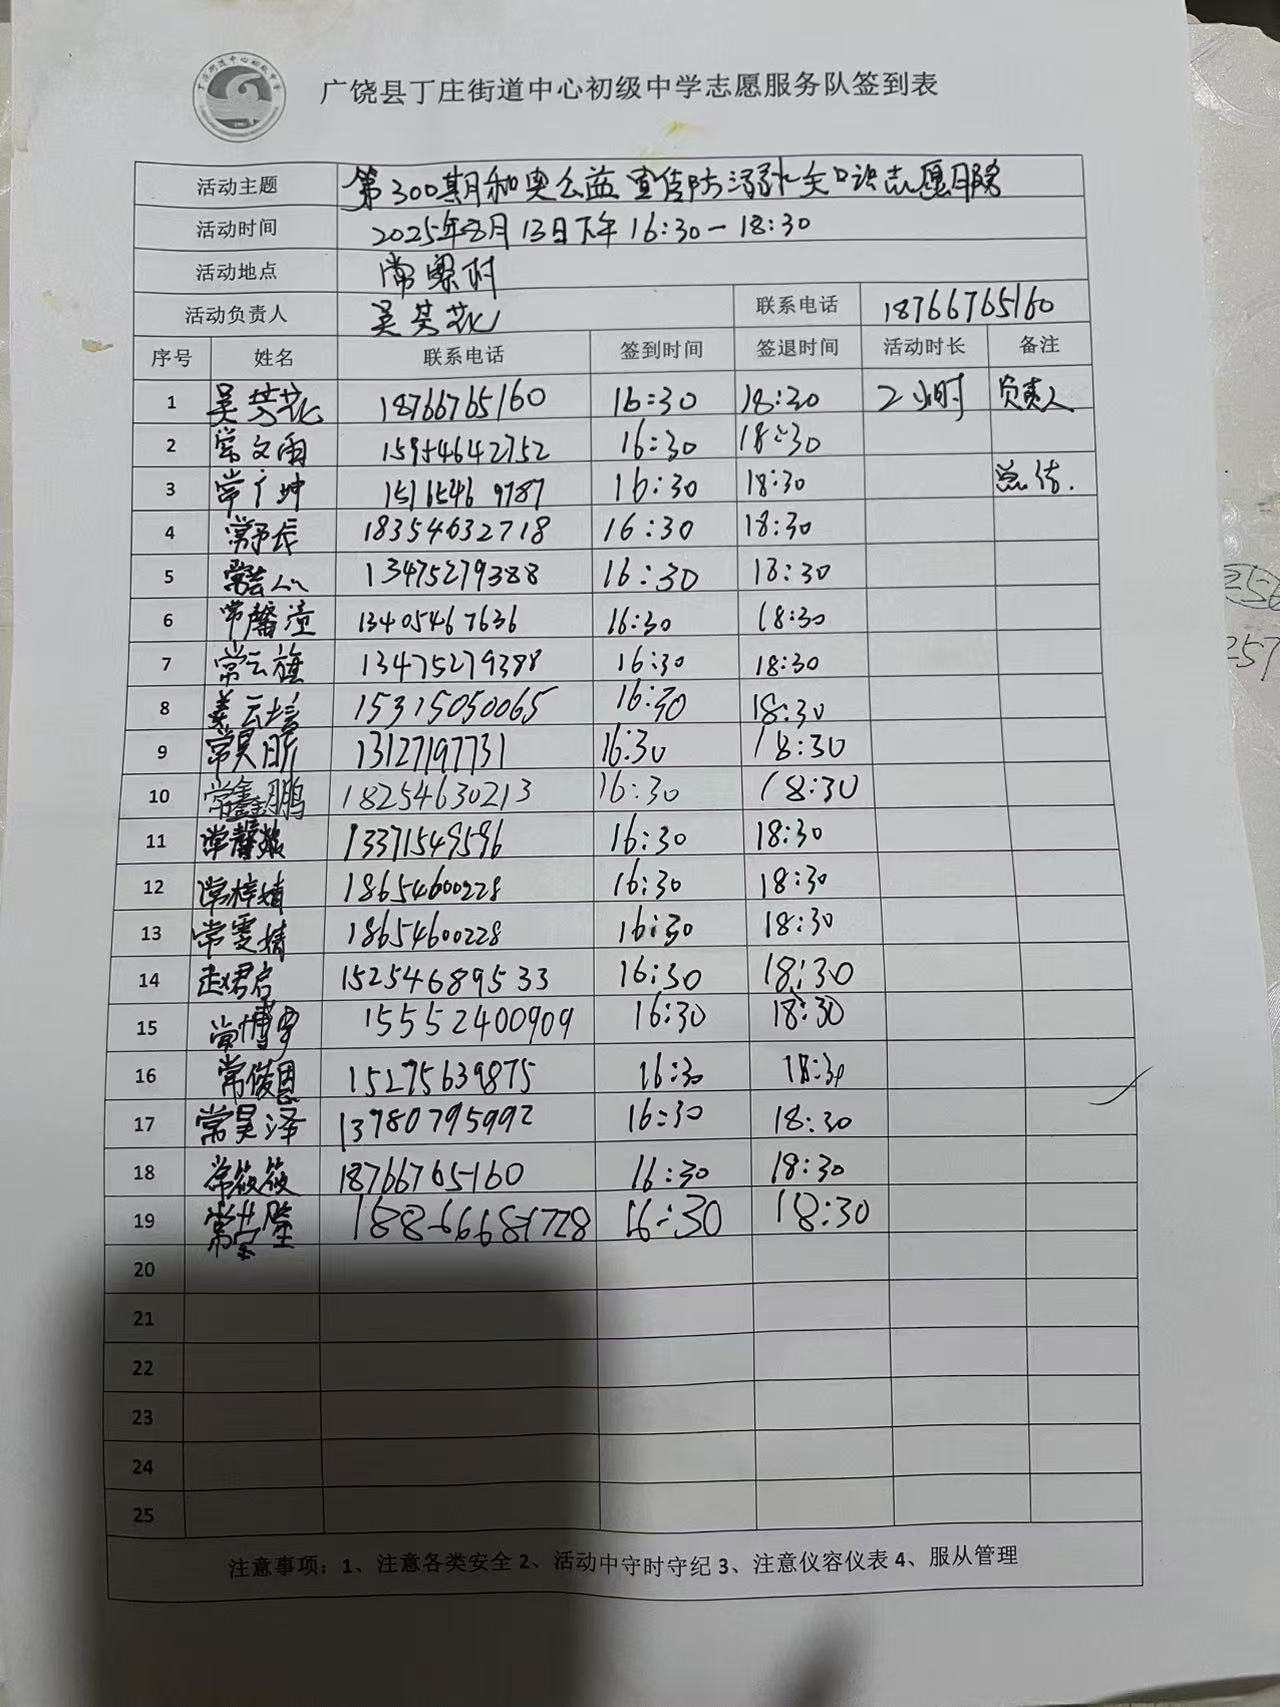 广饶县丁庄街道中心初级中学志愿服务队签到表
活动主题 第300期和奥公益宣传防溺水知识志愿服务
活动时间 2025年8月13日下午16:30-18:30
活动地点 常梁村
活动负责人 吴芬花 联系电话 18766765160
序号 姓名 联系电话 签到时间 签退时间 活动时长 备注
1 吴芬花 18766765160 16:30 18:30 2小时 负责人
2 常文雨 15954642752 16:30 18:30
3 常广坤 1516546 9787 16:30 18:30 总结.
4 常予辰 18354632718 16:30 18:30
5 常 13475279388 16:30 18:30
6 常馨潼 13405467636 16:30 18:30
7 常云旗 13475279388 16:30 18:30
8 姜云培 15315050065 16:30 18:30
9 常昊昕 13127197731 16:30 18:30
10 常鑫鹏 18254630213 16:30 18:30
11 常馨 13371549596 16:30 18:30
12 常梓婧 18654600228 16:30 18:30
13 常雯婧 18654600228 16:30 18:30
14 赵君启 15254689533 16:30 18:30
15 常博宇 15552400909 16:30 18:30
16 常俊恩 15275639875 16:30 18:30
17 常昊泽 13780795992 16:30 18:30
18 常筱筱 18766765160 16:30 18:30
19 常 16:30 18:30
20
21
22
23
24
25
注意事项：1、注意各类安全 2、活动中守时守纪 3、注意仪容仪表 4、服从管理